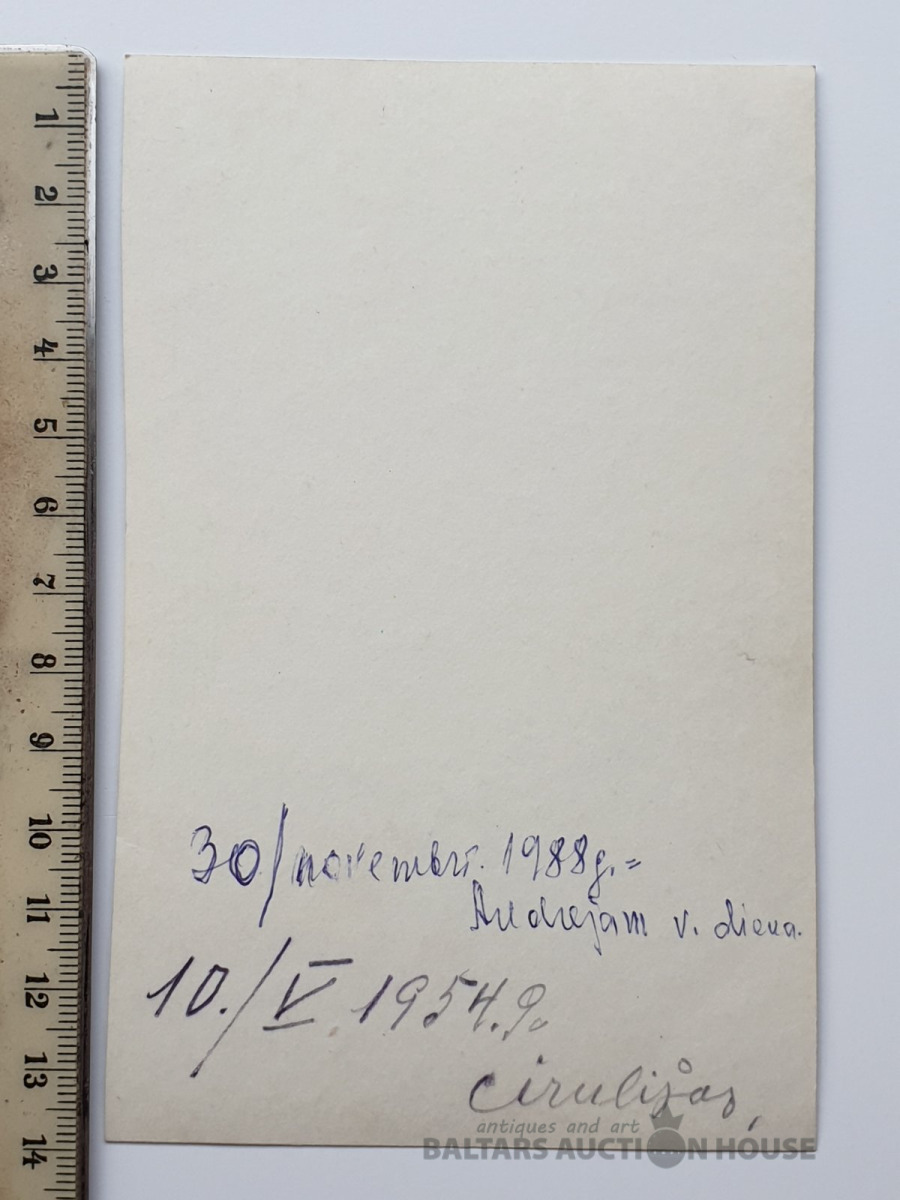 1
2
3
4
5
6
7
8
9
10
11
12
13
14
30/novembri. 1988g.=
Andrejam v. diena.
10./V 1954.g.
cirulišos,
antiques and art
BALTARS AUCTION HOUSE